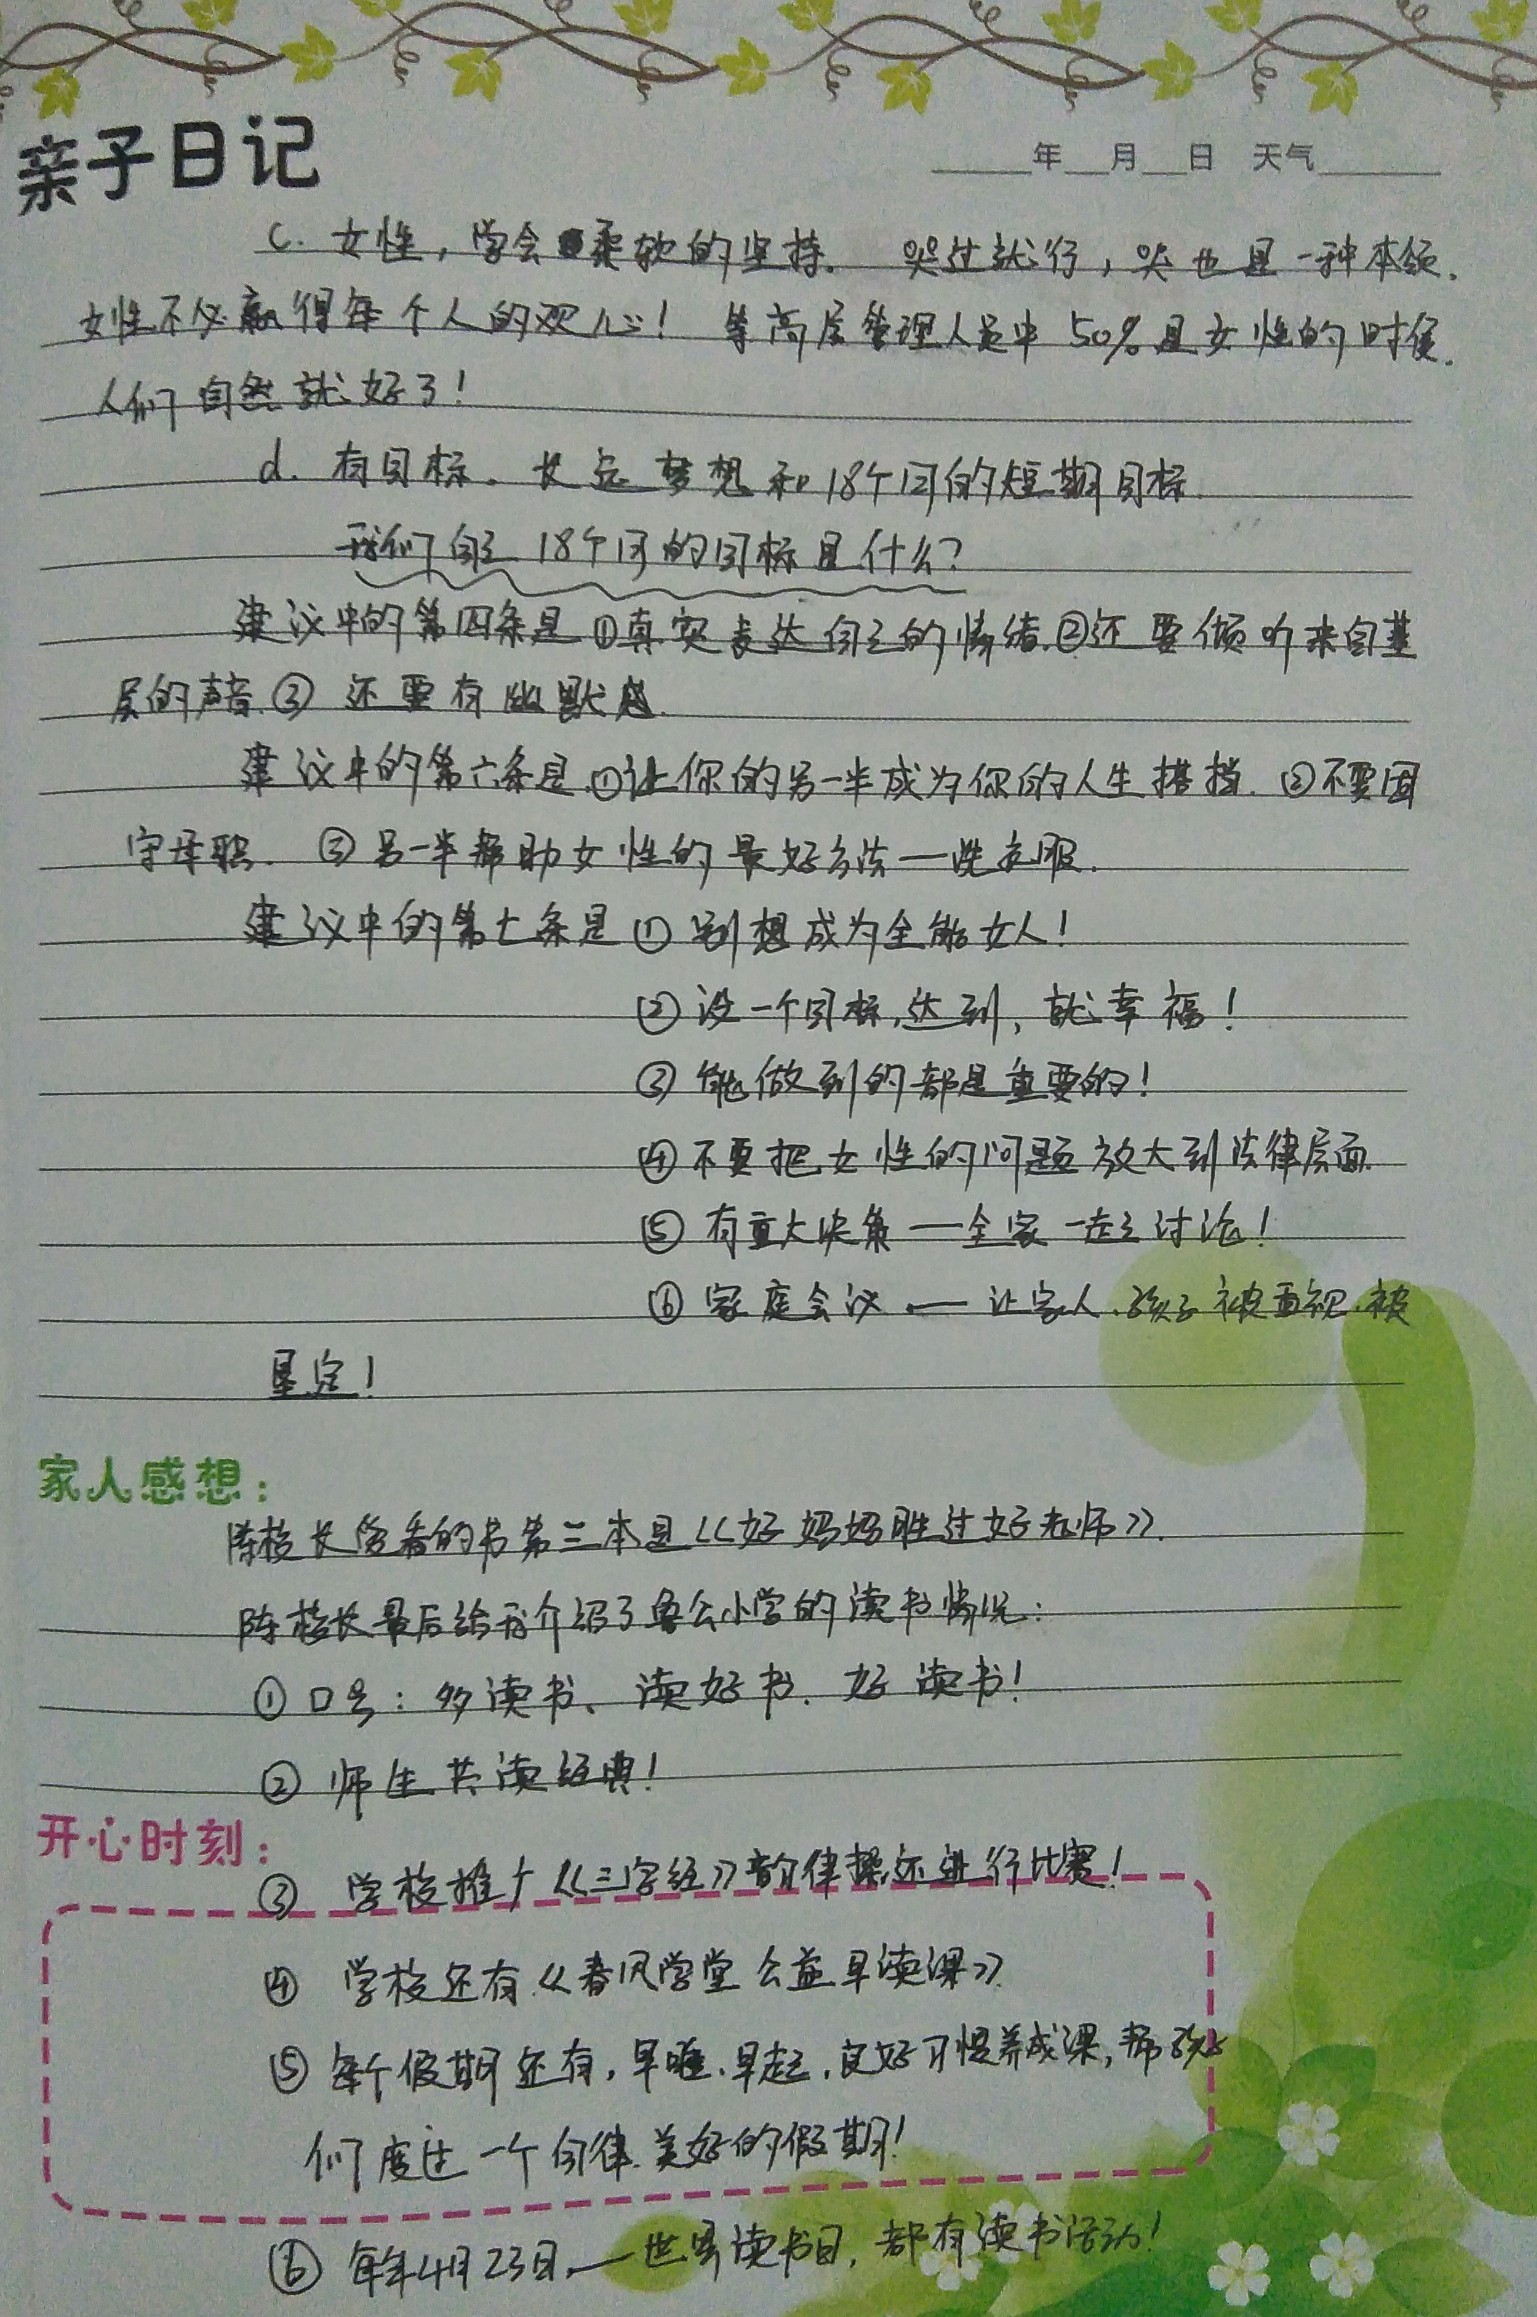 亲子日记
年 月 日 天气
c. 女性，学会柔软的坚持。 哭过就行，哭也是一种本领.
女性不必赢得每个人的欢心！ 等高层管理人员中50%是女性的时候.
人们自然就好了！
d. 有目标。长远梦想和18个月的短期目标.
我们自己18个月的目标是什么？
建议中的第四条是①真实表达自己的情绪.②还要倾听来自基
层的声音.③ 还要有幽默感.
建议中的第六条是.①让你的另一半成为你的人生搭档. ②不要固
守母职. ③另一半帮助女性的最好方法一洗衣服.
建议中的第七条是①别想成为全能女人！
②设一个目标,达到，就幸福！
③能做到的都是重要的！
④不要把女性的问题放大到法律层面.
⑤有重大决策一全家一起讨论！
⑥家庭会议.一 让家人.孩子被重视.被
肯定！
家人感想：
陈校长签看的书第三本是《好妈妈胜过好老师》.
陈校长最后给我介绍了鲁公小学的读书情况：
①口号：多读书、读好书.好读书！
②师生共读经典！
开心时刻：
③ 学校推广《三字经》韵律操还进行比赛！
④ 学校还有《春风学堂公益早读课》.
⑤每个假期还有,早睡.早起.良好习惯养成课,帮孩子
们度过一个自律.美好的假期！
⑥ 每年4月23日.一世界读书日，都有读书活动！